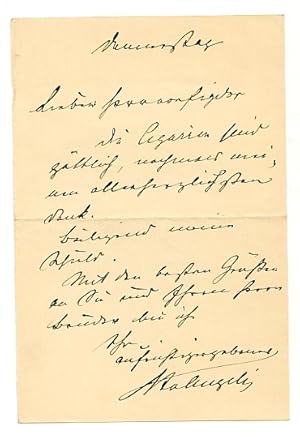 Donnerstag
Lieber Herr von Figdor
die Cigarren sind
göttlich, nochmals mei-
nen allerherzlichsten
Dank.
beiliegend meine
Schuld.
Mit den besten Grüßen
an Sie und Ihren Herrn
Bruder bin ich
Ihr
aufrichtig ergebener
HvAngeli